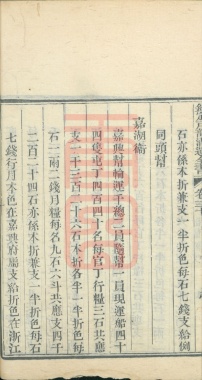 石亦係本折兼支一半折色每石七錢支給例
同頭幫
嘉湖衛
嘉興幫輪運千總二員隨幫一員現運船四十
四隻屯丁四百四十名每官丁行糧三石共應
支一千三百二十六石本折各半一半折色每
石一兩二錢月糧每名九石六斗共應支四千
二百二十四石亦係本折兼支一半折色每石
七錢行月本色在嘉興府屬支給折色在浙江